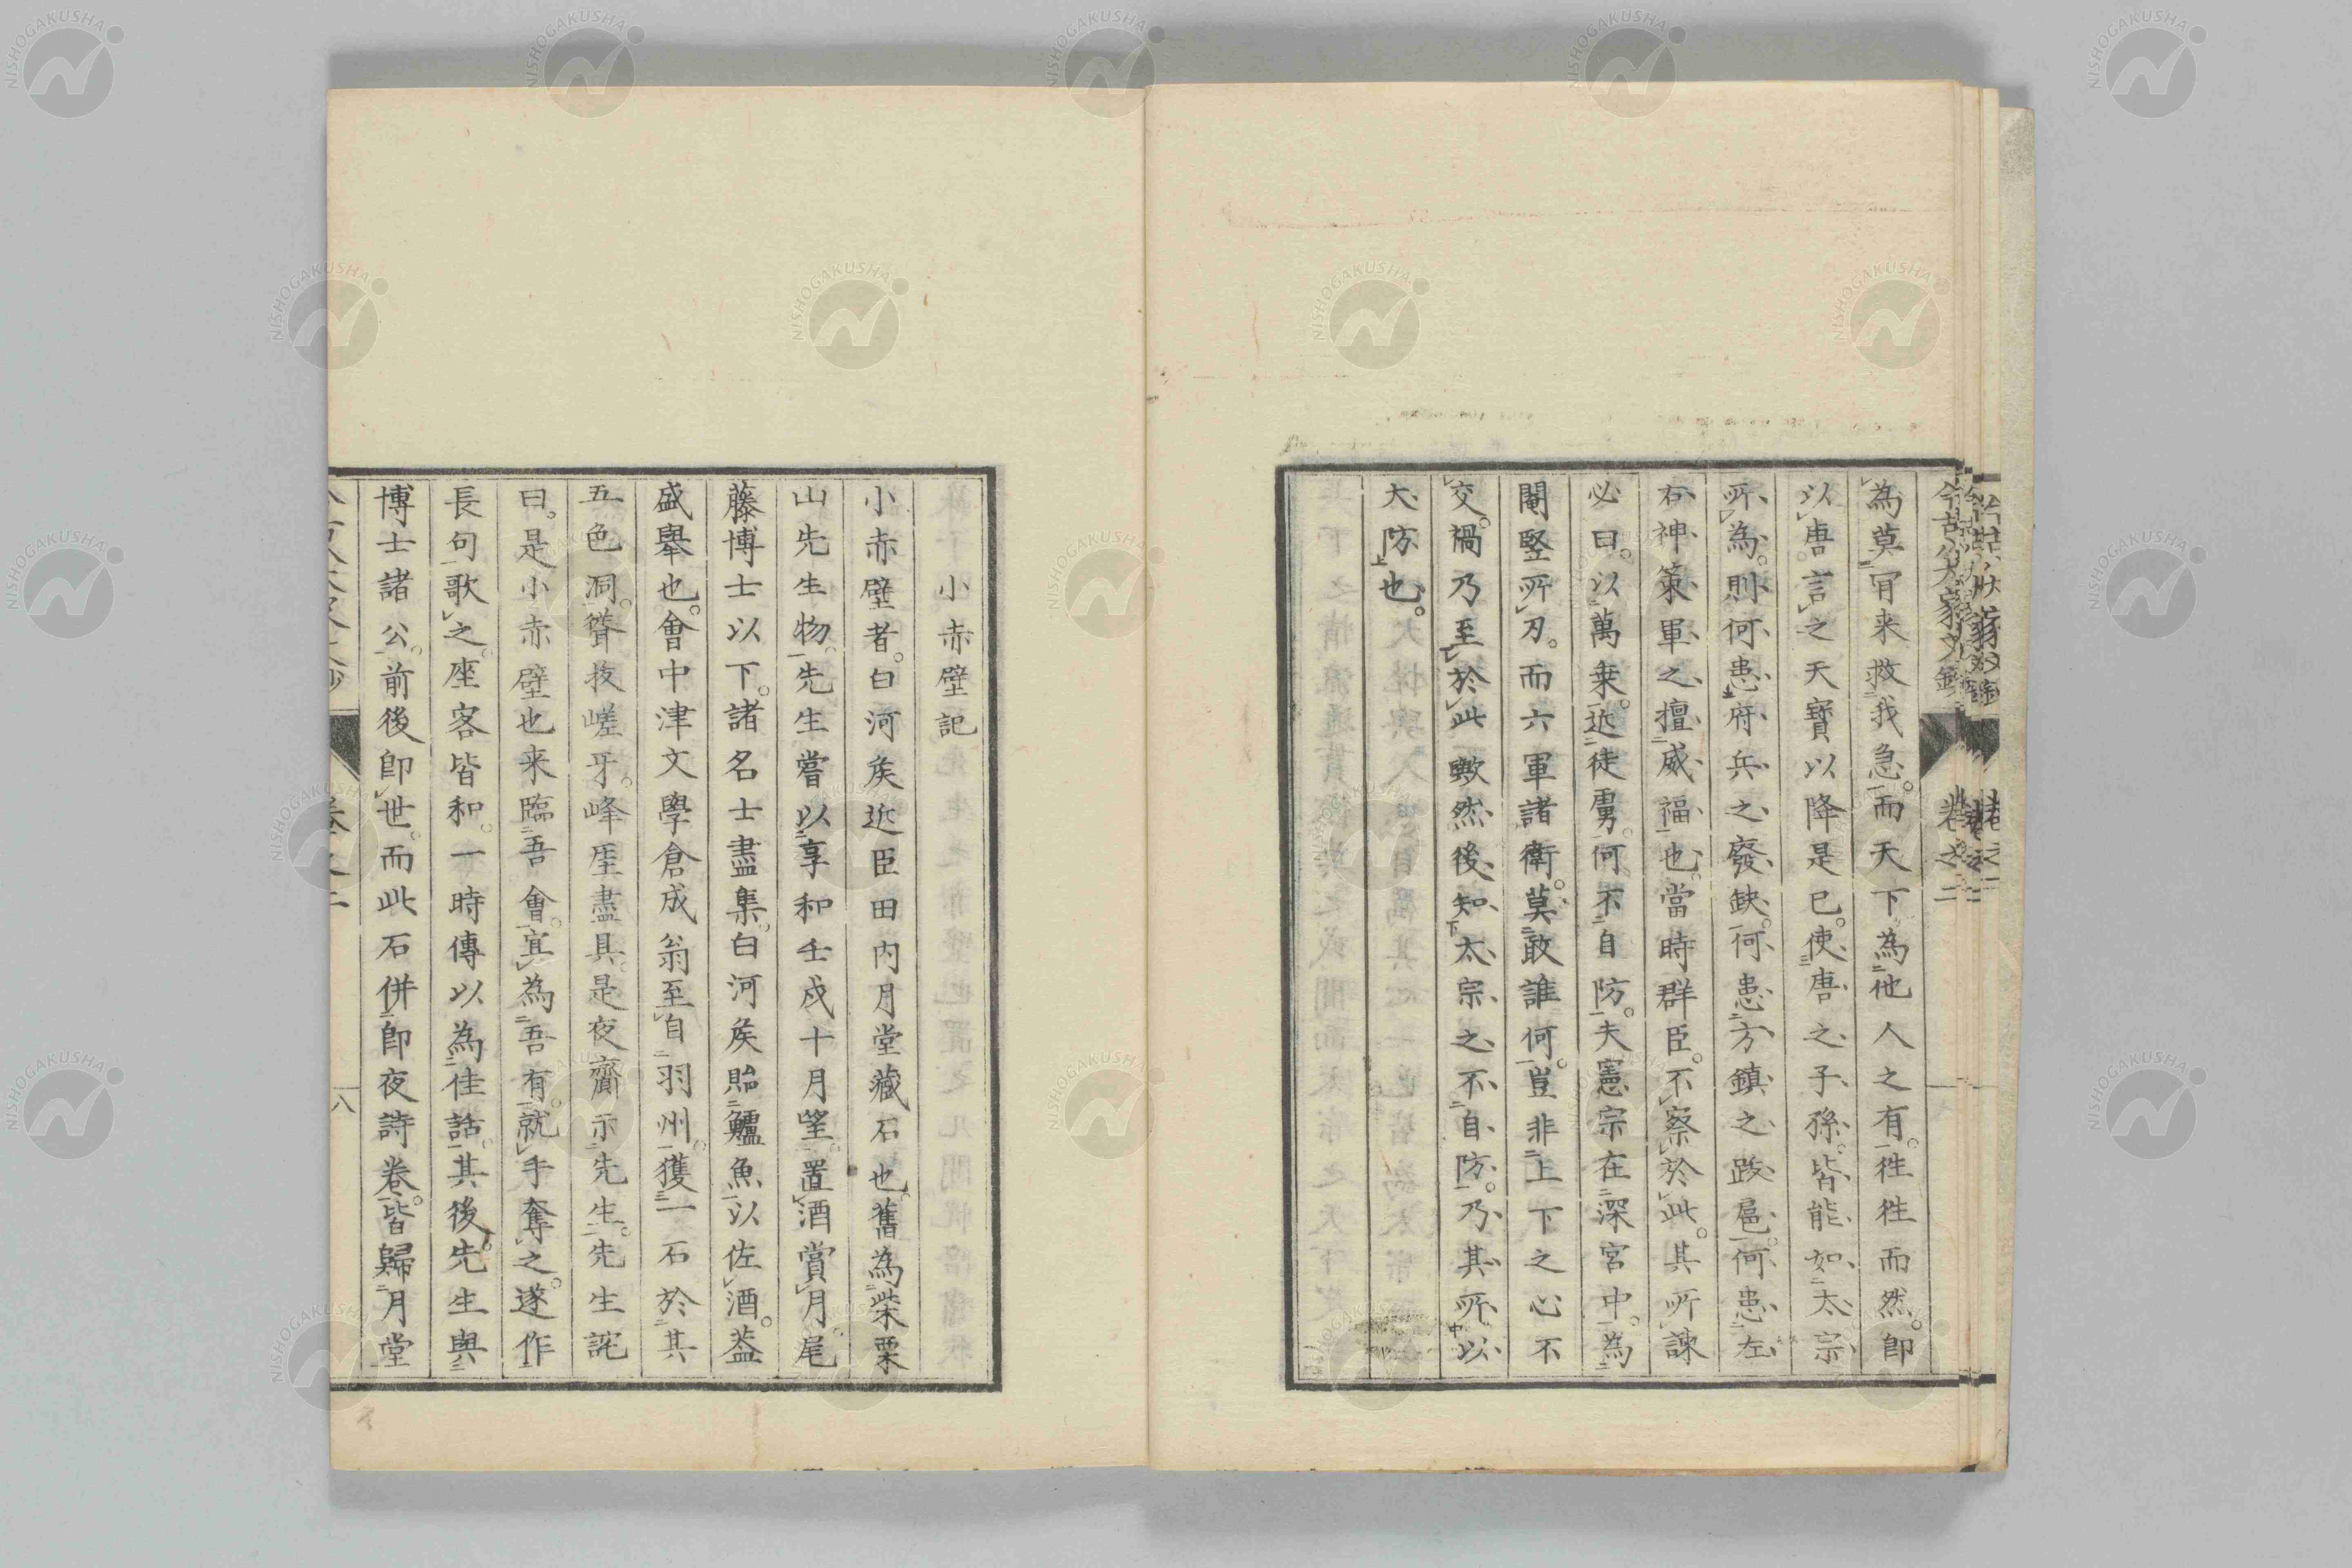 為莫肎来救我急。而天下為他人之有。徃徃而然。卽
以唐言之天寶以降是已。使唐之子孫。皆能如太宗
所為。則何患府兵之廢缺。何患方鎮之跋扈。何患左
右神策軍之擅威福也。當時群臣。不察於此。其所諫
必曰。以萬乗。近徒雩。何不自防。夫憲宗在深宮中。為
閹竪所刃。而六軍諸衛。莫敢誰何。豈非上下之心不
交。禍乃至於此歟。然後知太宗之不自防。乃其所以
大防也。
小赤壁記
小赤壁者。白河矦近臣田内月堂藏石也。舊為柴栗
山先生物。先生嘗以享和壬戌十月望。置酒賞月。尾
藤博士以下。諸名士盡集。白河矦貽鱸魚以佐酒。葢
盛舉也。會中津文學倉成翁至自羽州。獲一石於其
五色洞。聳抜嵯牙。峰厓盡具。是夜齎示先生。先生詫
曰。是小赤壁也来臨吾會。宜為吾有。就手奪之。遂作
長句歌之。座客皆和。一時傳以為佳話。其後。先生與
博士諸公。前後卽世。而此石併卽夜詩卷。皆歸月堂
卷之二
八
NISHOGAKUSHA